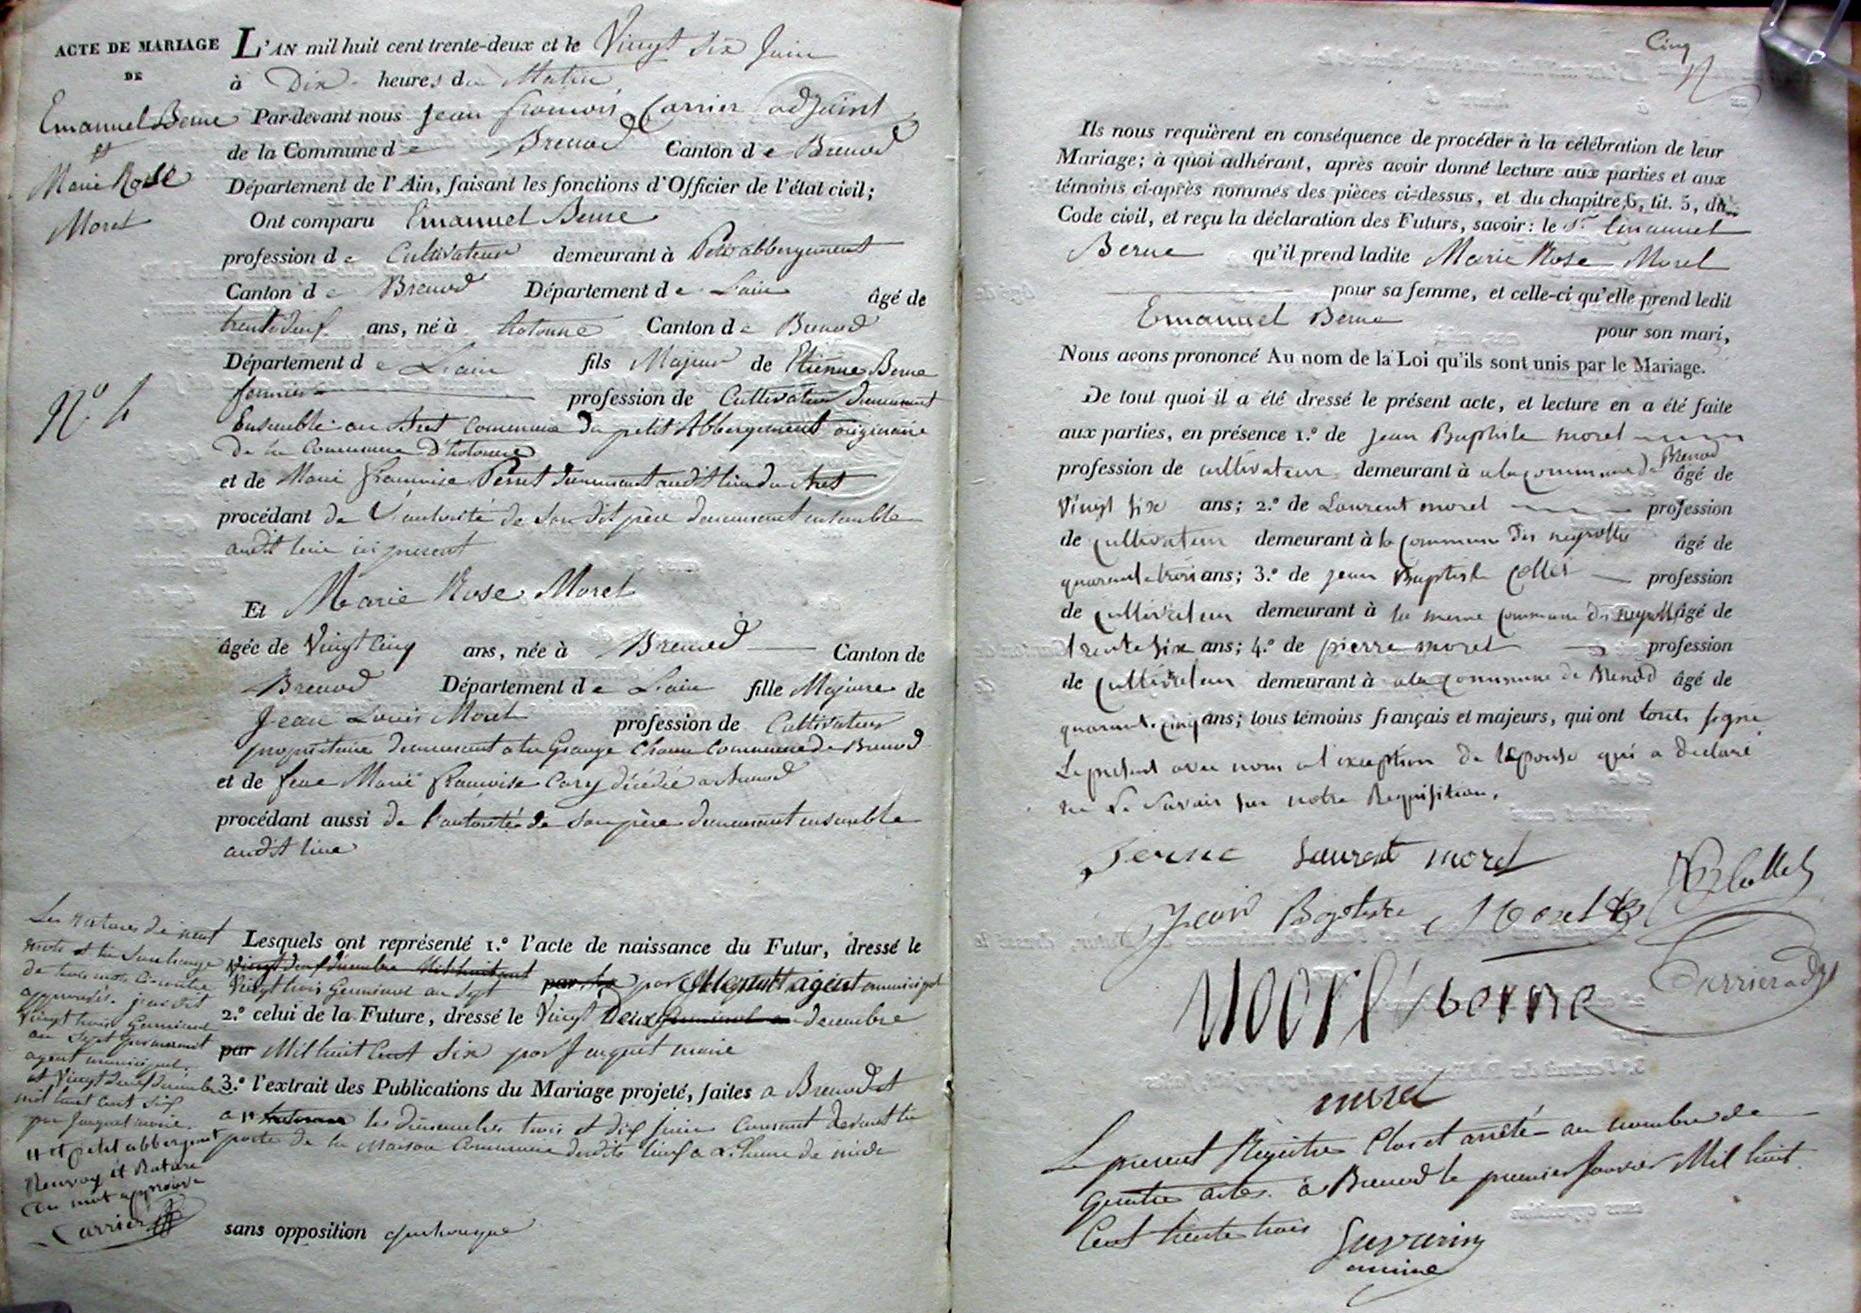 ACTE DE MARIAGE
DE
Emanuel Berne
et
Marie Rose
Moret
N.º 4
L'AN mil huit cent trente-deux et le Vingt Six Juin
à Dix heures du Matin
Par-devant nous Jean françois Carrier adjoint
de la Commune de Brenod Canton de Brenod
Département de l'Ain, faisant les fonctions d'Officier de l'état civil;
Ont comparu Emanuel Berne
profession de Cultivateur demeurant à Petit abbergement
Canton de Brenod Département de Lain âgé de
ans, né à hotonne Canton de Brenod
Département de Lain fils Majeur de Etienne Berne
fermier profession de Cultivateur demeurant
Ensemble au commune du petit Abbergement originaire
De la Commune D'hotonne
et de Marie françoise Perret demeurant audit lieu du
procédant de l'autorité de son dit père demeurant ensemble
audit lieu ici présent
Et Marie Rose Moret
âgée de Vingt Cinq ans, née à Brenod Canton de
Brenod Département de Lain fille Majeure de
Jean Louis Moret profession de Cultivateur
propriétaire demeurant a la Grange Commune de Brenod
et de feue Marie françoise Cary décédée a Brenod
procédant aussi de l'autorité de son père demeurant ensemble
audit lieu
Lesquels ont représenté 1.º l'acte de naissance du Futur, dressé le
Vingt trois Germinal an Sept par agent municipal
2.º celui de la Future, dressé le Vingt Deux decembre
par Mil huit Cent Six par Jacquet maire
3.º l'extrait des Publications du Mariage projeté, faites a Brenod et
a les dimanches trois et dix Juin Courant devant la
porte de la Maison Commune desdits lieux a L'heure de midi
sans opposition quelconque
Les ratures de neuf
mots et la Surcharge
de trois mots
approuvés
Vingt trois Germinal
an Sept
agent municipal
et Vingt deux décembre
mil huit cent six
par Jacquet maire
et petit abbergement
Renvoy et Rature
d'un mot approuvé
Carrier
Cinq
Ils nous requièrent en conséquence de procéder à la célébration de leur
Mariage; à quoi adhérant, après avoir donné lecture aux parties et aux
témoins ci-après nommés des pièces ci-dessus, et du chapitre 6, tit. 5, du
Code civil, et reçu la déclaration des Futurs, savoir: le S.r Emanuel
Berne qu'il prend ladite Marie Rose Moret
pour sa femme, et celle-ci qu'elle prend ledit
Emanuel Berne pour son mari,
Nous avons prononcé Au nom de la Loi qu'ils sont unis par le Mariage.
De tout quoi il a été dressé le présent acte, et lecture en a été faite
aux parties, en présence 1.º de Jean Baptiste moret
profession de cultivateur demeurant à a la commune de Brenod âgé de
vingt six ans; 2.º de Laurent moret profession
de cultivateur demeurant à la commune des neyrolles âgé de
quarante trois ans; 3.º de jean Baptiste Collet profession
de cultivateur demeurant à la meme commune des neyrolles âgé de
trente six ans; 4.º de pierre moret profession
de cultivateur demeurant à a la commune de Brenod âgé de
quarante cinq ans; tous témoins français et majeurs, qui ont touts signé
Le présent avec nous a l'exception de l'épouse qui a declaré
ne Le Savoir sur notre Requisition.
Berne Laurent moret
JB Collet
Jean Baptiste Moret
Carrier adj
Moret Berne
moret
Le présent Registre Clos et arrêté au nombre de
quatre actes. à Brenod le premier Janvier Mil huit
Cent trente trois
maire